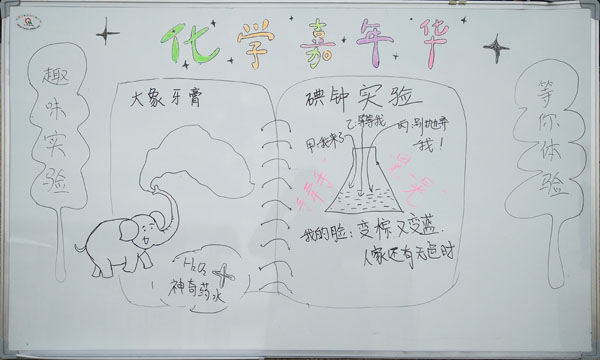 化学嘉年华
趣味实验
大象牙膏
H₂O₂
神奇药水
碘钟实验
甲:我来了
乙:等等我
丙:别抛弃
我!
我的脸:变棕又变蓝.
人家还有无色时
等你体验